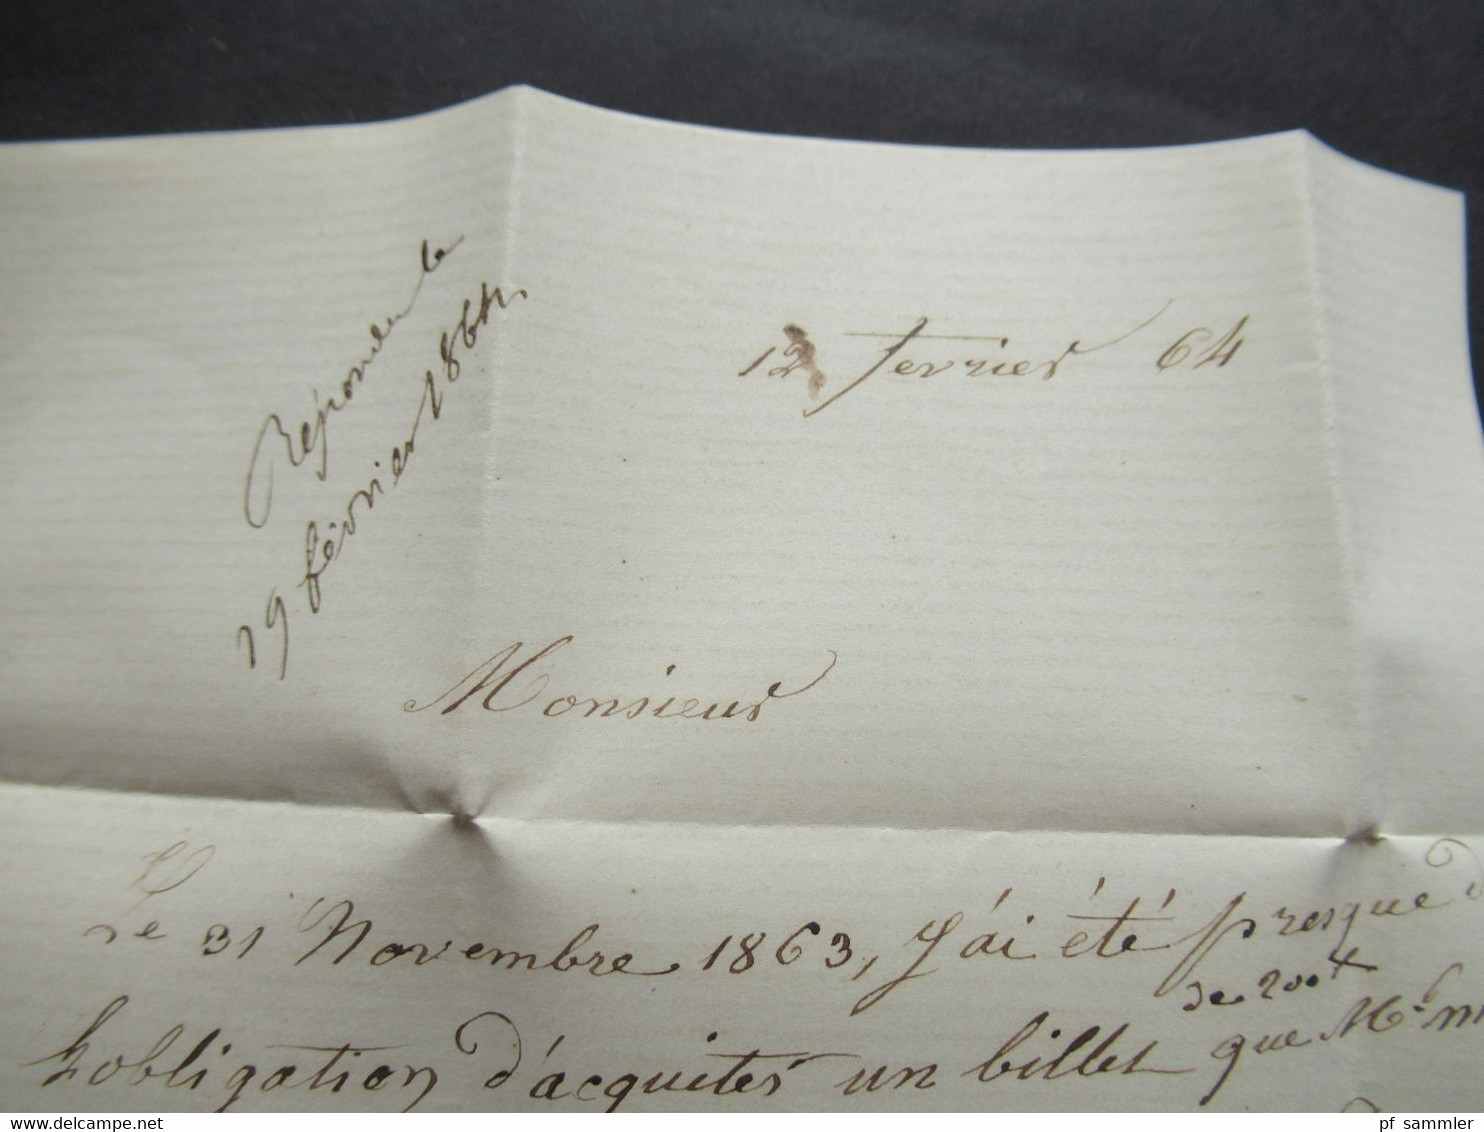 Répondu le
19 février 1864
12 fevrier 64
Monsieur
Le 31 Novembre 1863, J'ai été presque
de 200 f
l'obligation d'acquiter un billet que Mr
delcampe.net
pf_sammler